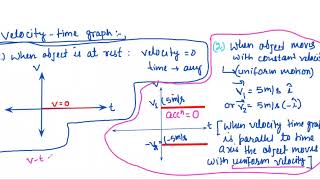 velocity-time graph:
) When object is at rest: velocity = 0
time → any
v
v=0
t
v-t
(2) When object moves
with constant velocity
(uniform motion)
V₁ = 5m/s î
or V₂ = 5m/s(-î)
v
V₁
(5m/s
accⁿ = 0
t
-V₂
(-5m/s
[When velocity time graph
is parallel to time
axis the object moves
with uniform velocity]